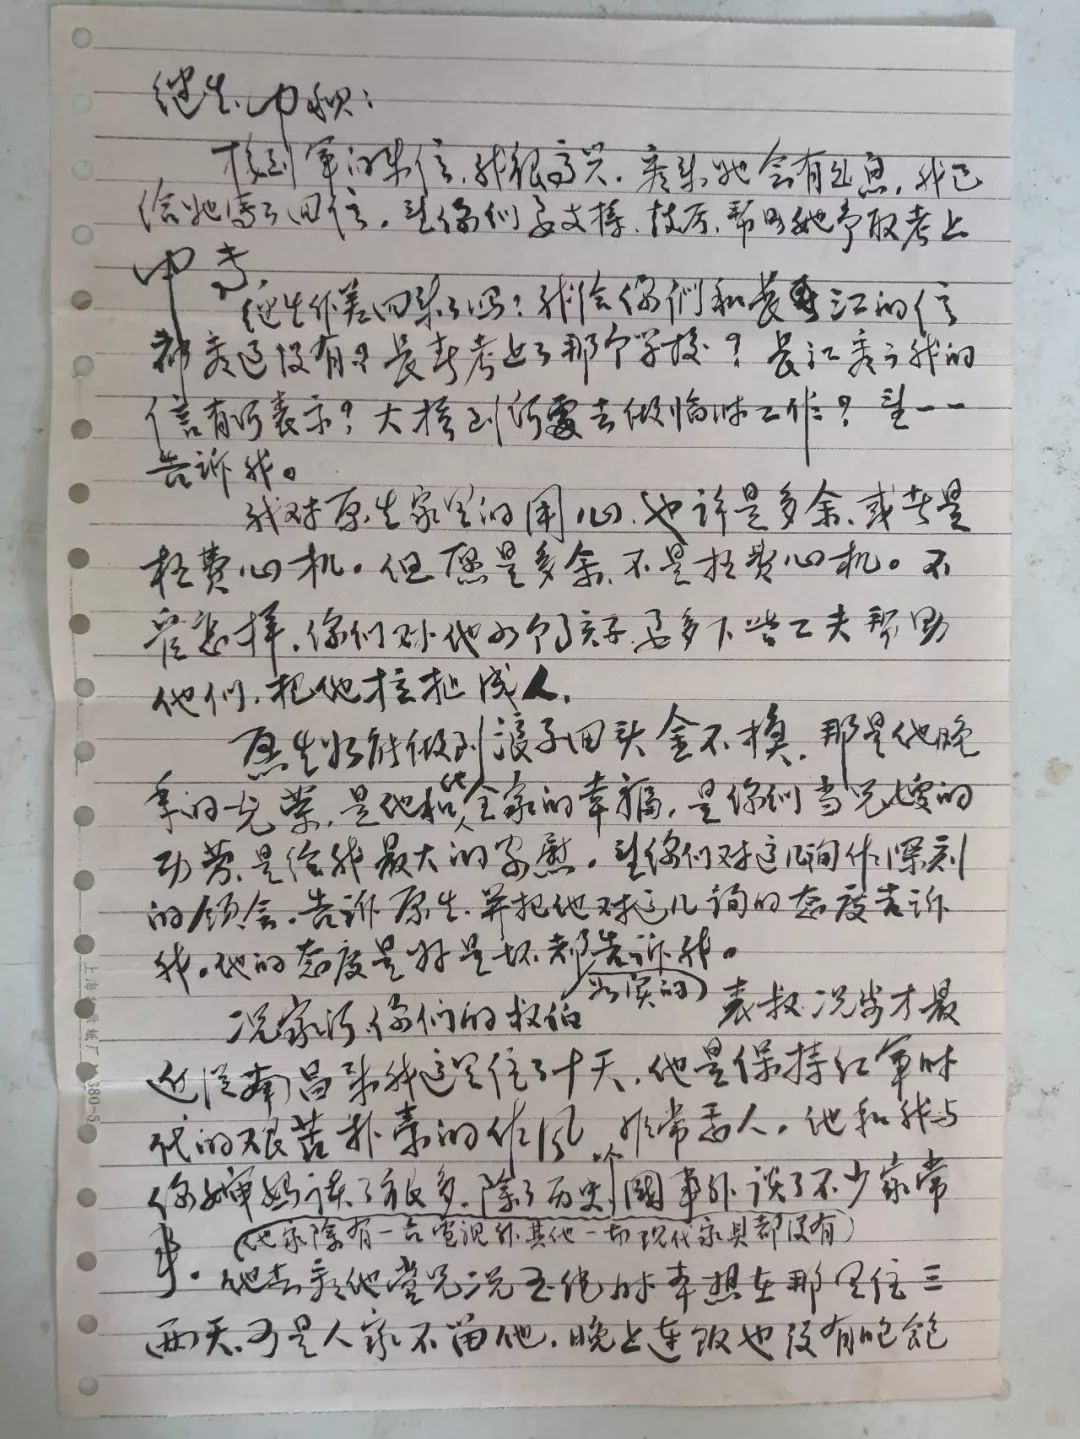 继生、巾帼：
接到军的来信，我很高兴，看来她会有出息，我已
给她写了回信，望你们要支撑、扶持、帮助她争取考上
中专。
继生作差回来了吗？我给你们和长江的信
都看过没有？长春考上了那个学校？长江看了我的
信有何表示？大桥到何处去做临时工作？望一一
告诉我。
我对原生家里的用心，也许是多余，或者是
枉费心机。但愿是多余，不是枉费心机。不
管怎样，你们对他的孩子要多下些工夫帮助
他们，把他 成人。
原生如能做到浪子回头金不换，那是他晚
年的光荣，是他和他全家人的幸福，是你们当兄嫂的
功劳，是给我最大的安慰。望你们对这几句作深刻
的领会，告诉原生，并把他对这几词的态度告诉
我。他的态度是好是坏都（如实的）告诉我。
况家河，你们的叔伯 表叔况步才最
近从南昌来我这里住了十天，他是保持红军时
代的艰苦朴素的作风，非常丢人。他和我与
你婶妈谈了很多，除了历史、国事外谈了不少家常
事。（他家除有一台电视外其他一切现代家具都没有）
他去看他堂兄况玉纯时本想在那里住三
两天，可是人家不留他，晚上连饭也没有吃饱
上海 机械厂 380-5